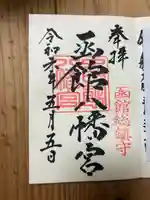 奉拝
函館総鎮守
函館八幡宮
令和元年五月五日